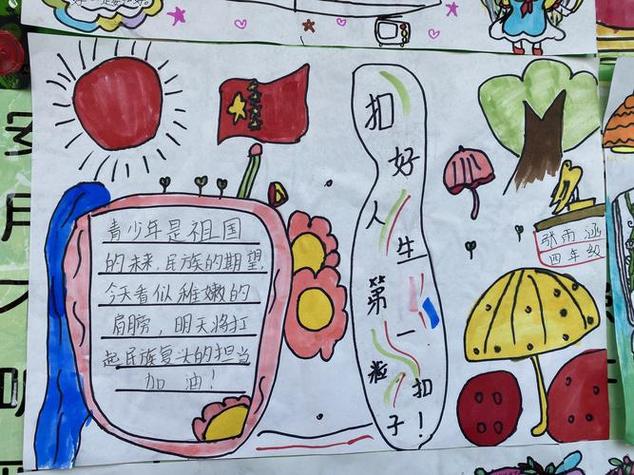 扣好人生第一粒扣子！
青少年是祖国
的未来，民族的期望，
今天看似稚嫩的
肩膀，明天将扛
起民族复兴的担当
加油！
张雨涵
四年级